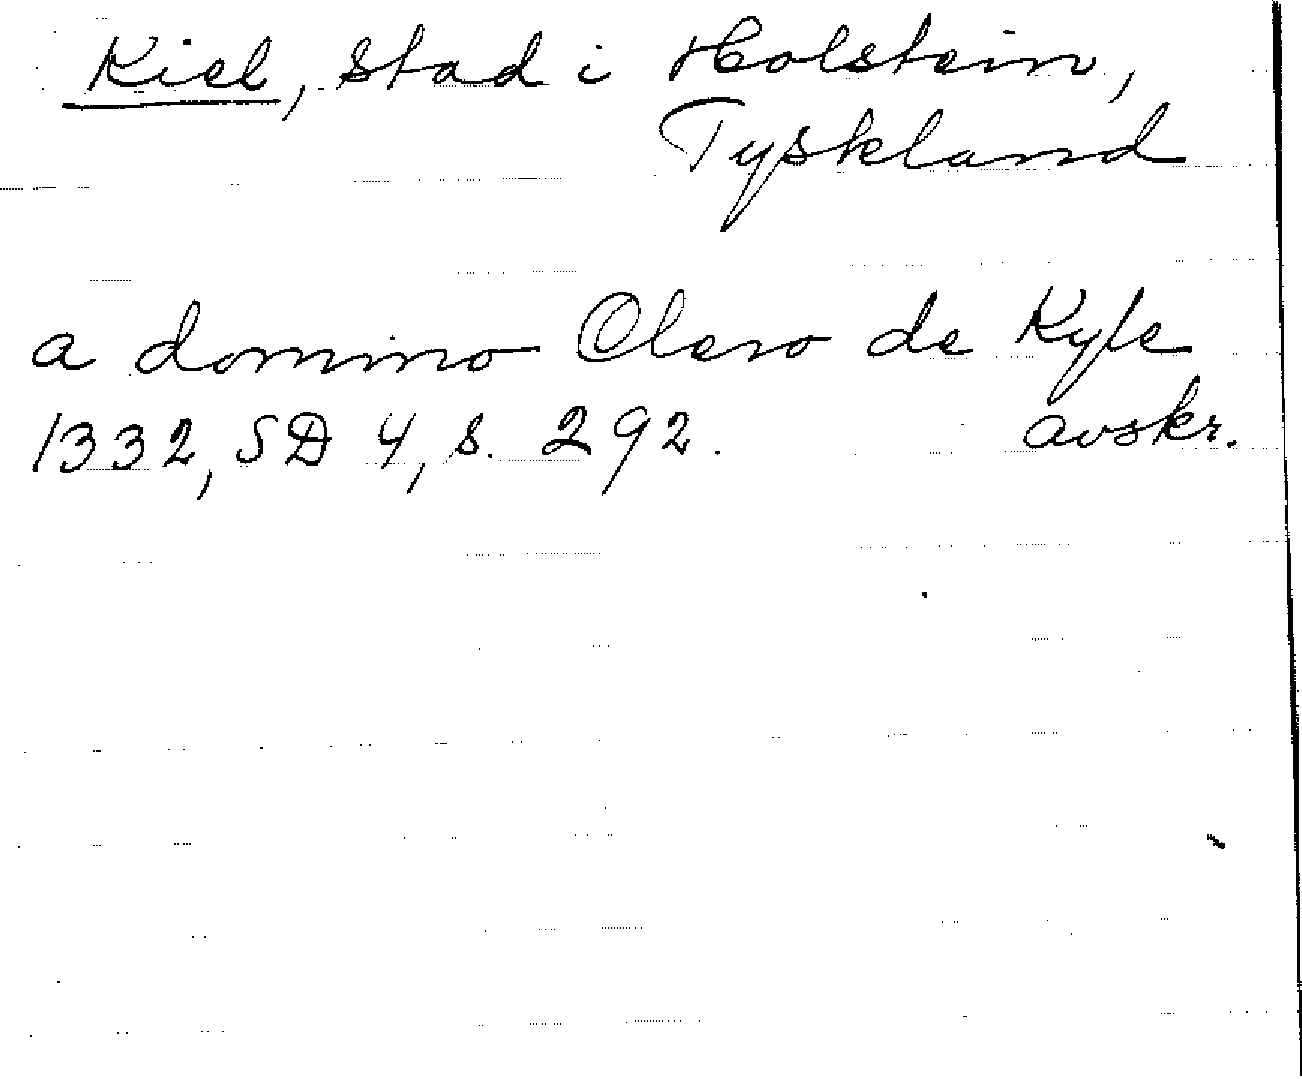 Kiel, stad i Holstein,
Tyskland
a domino Clero de Kyle
1332, SD 4, s. 292. avskr.